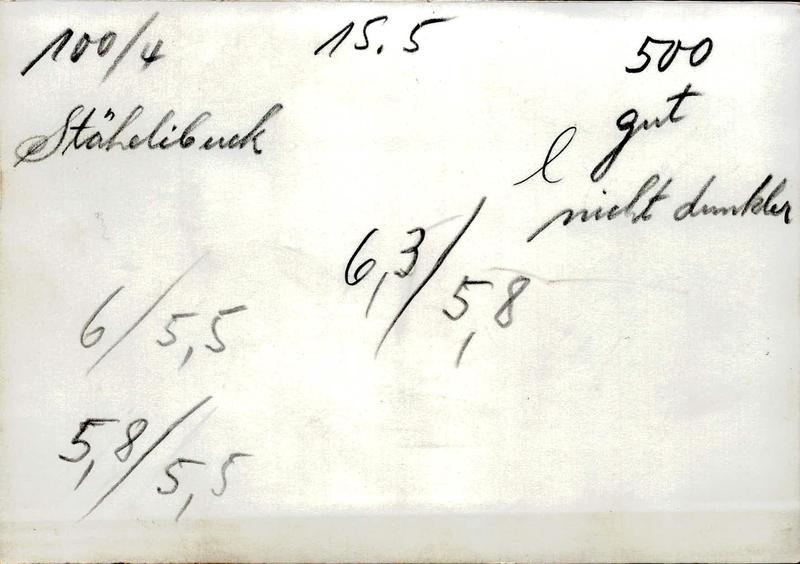 100/4 15.5 500
Stähelibuck gut
l
nicht dunkler
6,3/5,8
6/5,5
5,8/5,5